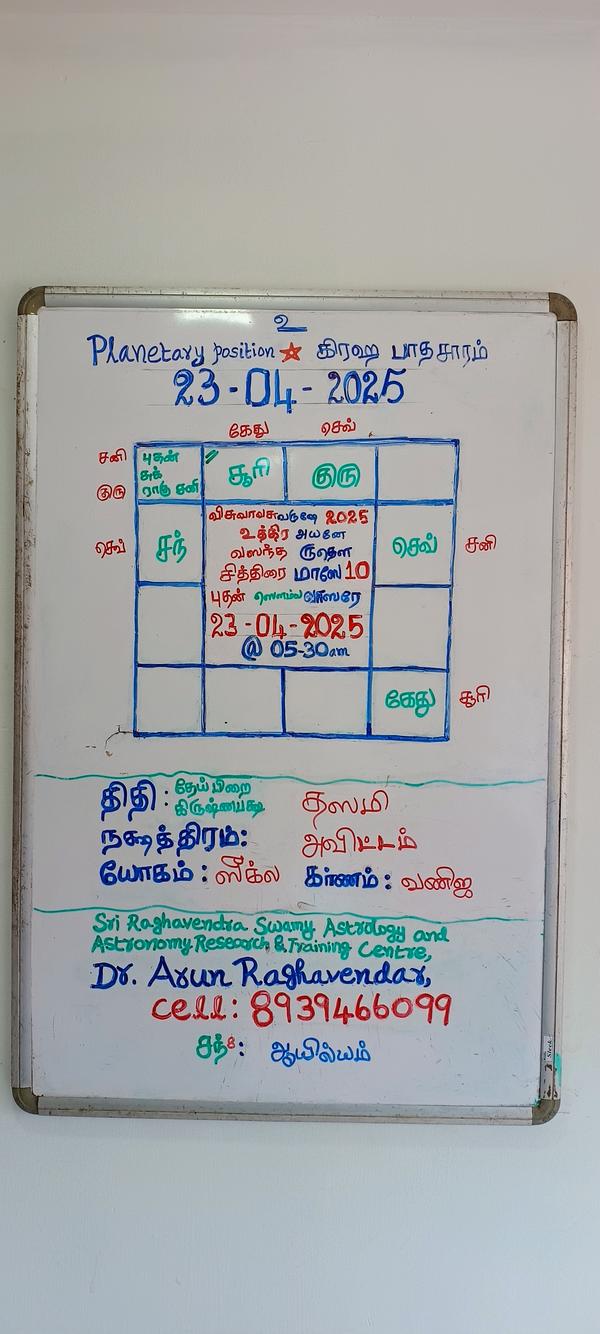 உ
Planetary position ☆ கிரஹ பாதசாரம்
23-04-2025
கேது செவ்
சனி
குரு
புதன்
சுக்
ராகு சனி
சூரி
குரு
செவ்
சந்
செவ்
சனி
விசுவாவசு வருஷே 2025
உத்திர அயனே
வஸந்த ருதௌ
சித்திரை மாஸே 10
புதன் ஸௌம்ய வாஸரே
23-04-2025
@ 05-30am
கேது
சூரி
திதி: தேய்பிறை
கிருஷ்ணபக்ஷ தஸமி
நக்ஷத்திரம்: அவிட்டம்
யோகம்: ஸீக்ல கர்ணம்: வணிஜ
Sri Raghavendra Swamy Astrology and
Astronomy Research & Training Centre,
Dr. Arun Raghavendar,
Cell: 8939466099
சந் 8: ஆயில்யம்